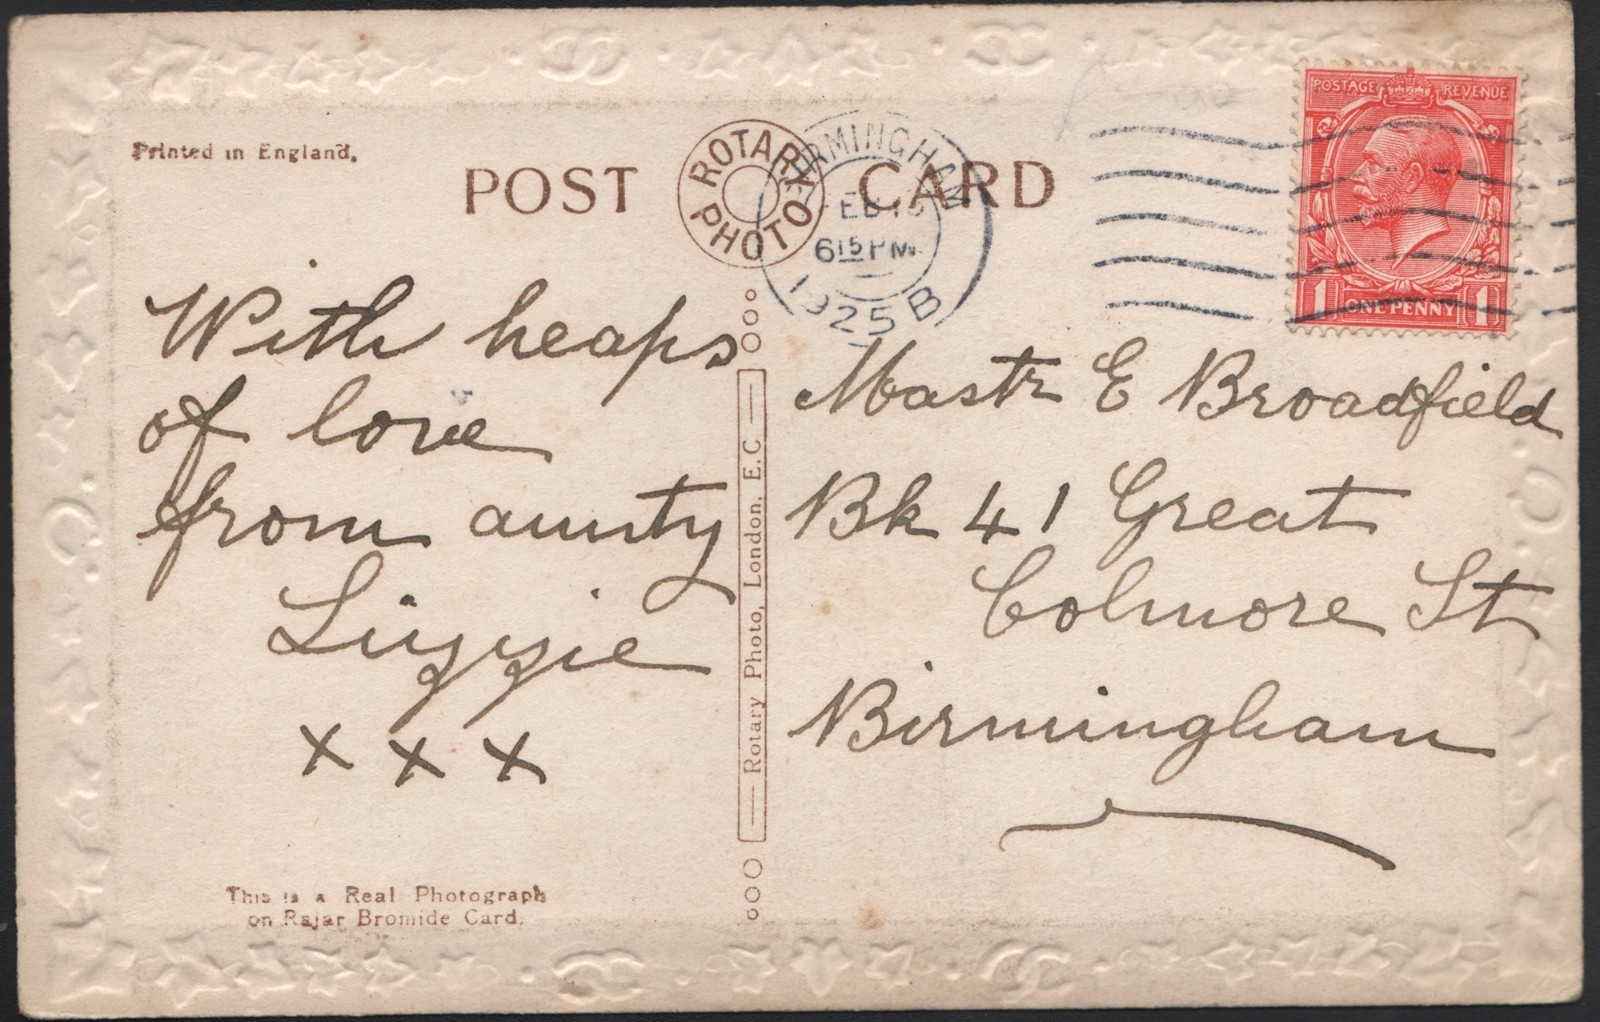 Printed in England.
POST CARD
ROTARY PHOTO
BIRMINGHAM
6 15 PM
1925 B
POSTAGE REVENUE
1 ONE PENNY 1
With heaps
of love
from aunty
Lizzie
x x x
This is a Real Photograph
on Rajar Bromide Card.
Rotary Photo, London, E.C.
Mastr E Broadfield
Bk 41 Great
Colmore St
Birmingham